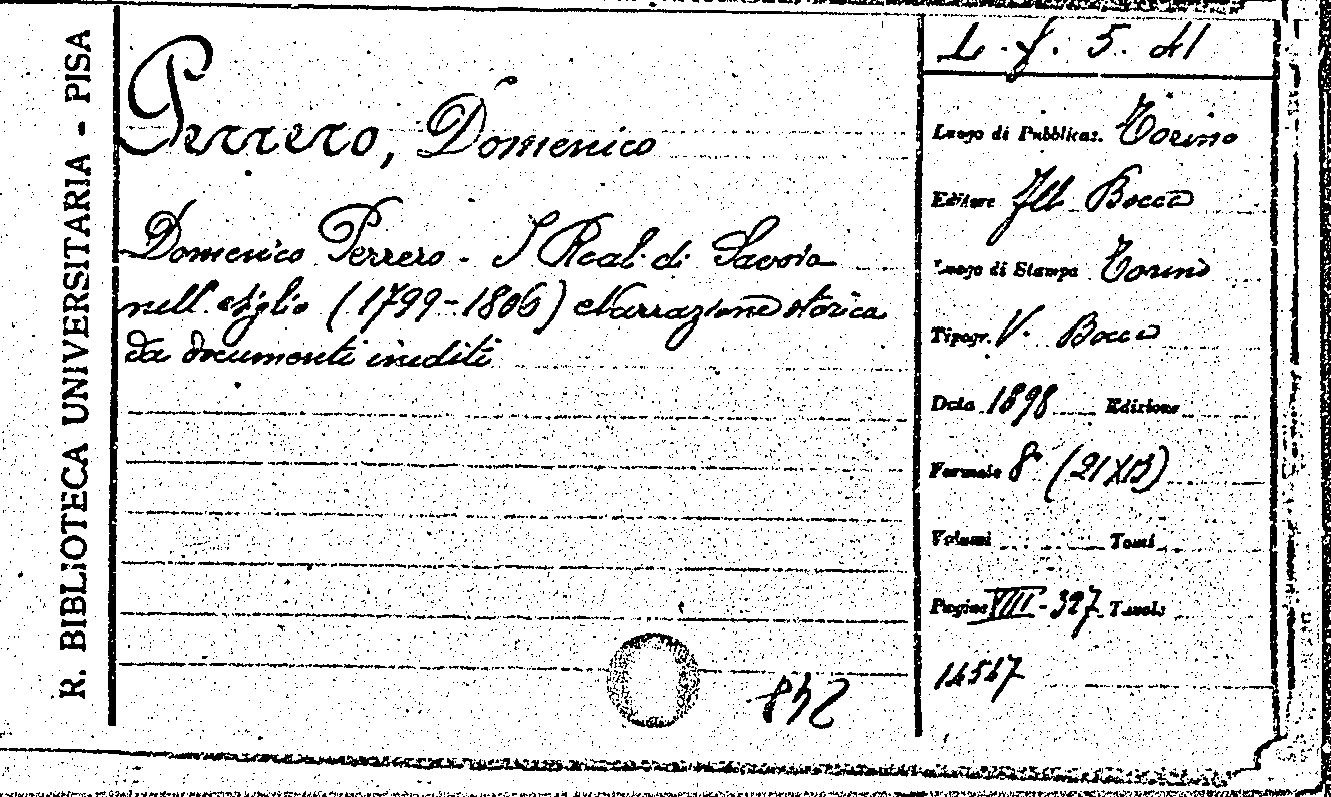 R. BIBLIOTECA UNIVERSITARIA - PISA
Perrero, Domenico
Domenico Perrero - I Reali di Savoia
nell'esiglio (1799-1806) Narrazione storica
da documenti inediti
248
L. f. 5. 41
Luogo di Pubblicaz. Torino
Editore Flli Bocca
Luogo di Stampa Torino
Tipogr. V. Bocca
Data 1898 Edizione
Formato 8° (21X13)
Volumi Tomi
Pagine VIII-327 Tavole